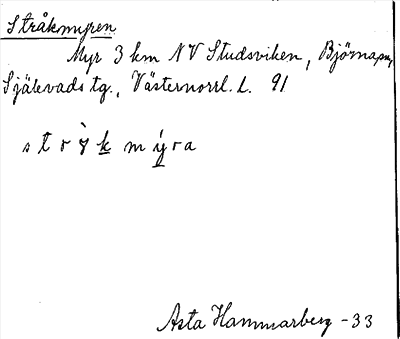 Stråkmyren
Myr 3 km NV Studsviken, Björna sn,
Själevads tg., Västernorrl. L. 91
s t r ỳ k m ý r a
Asta Hammarberg -33